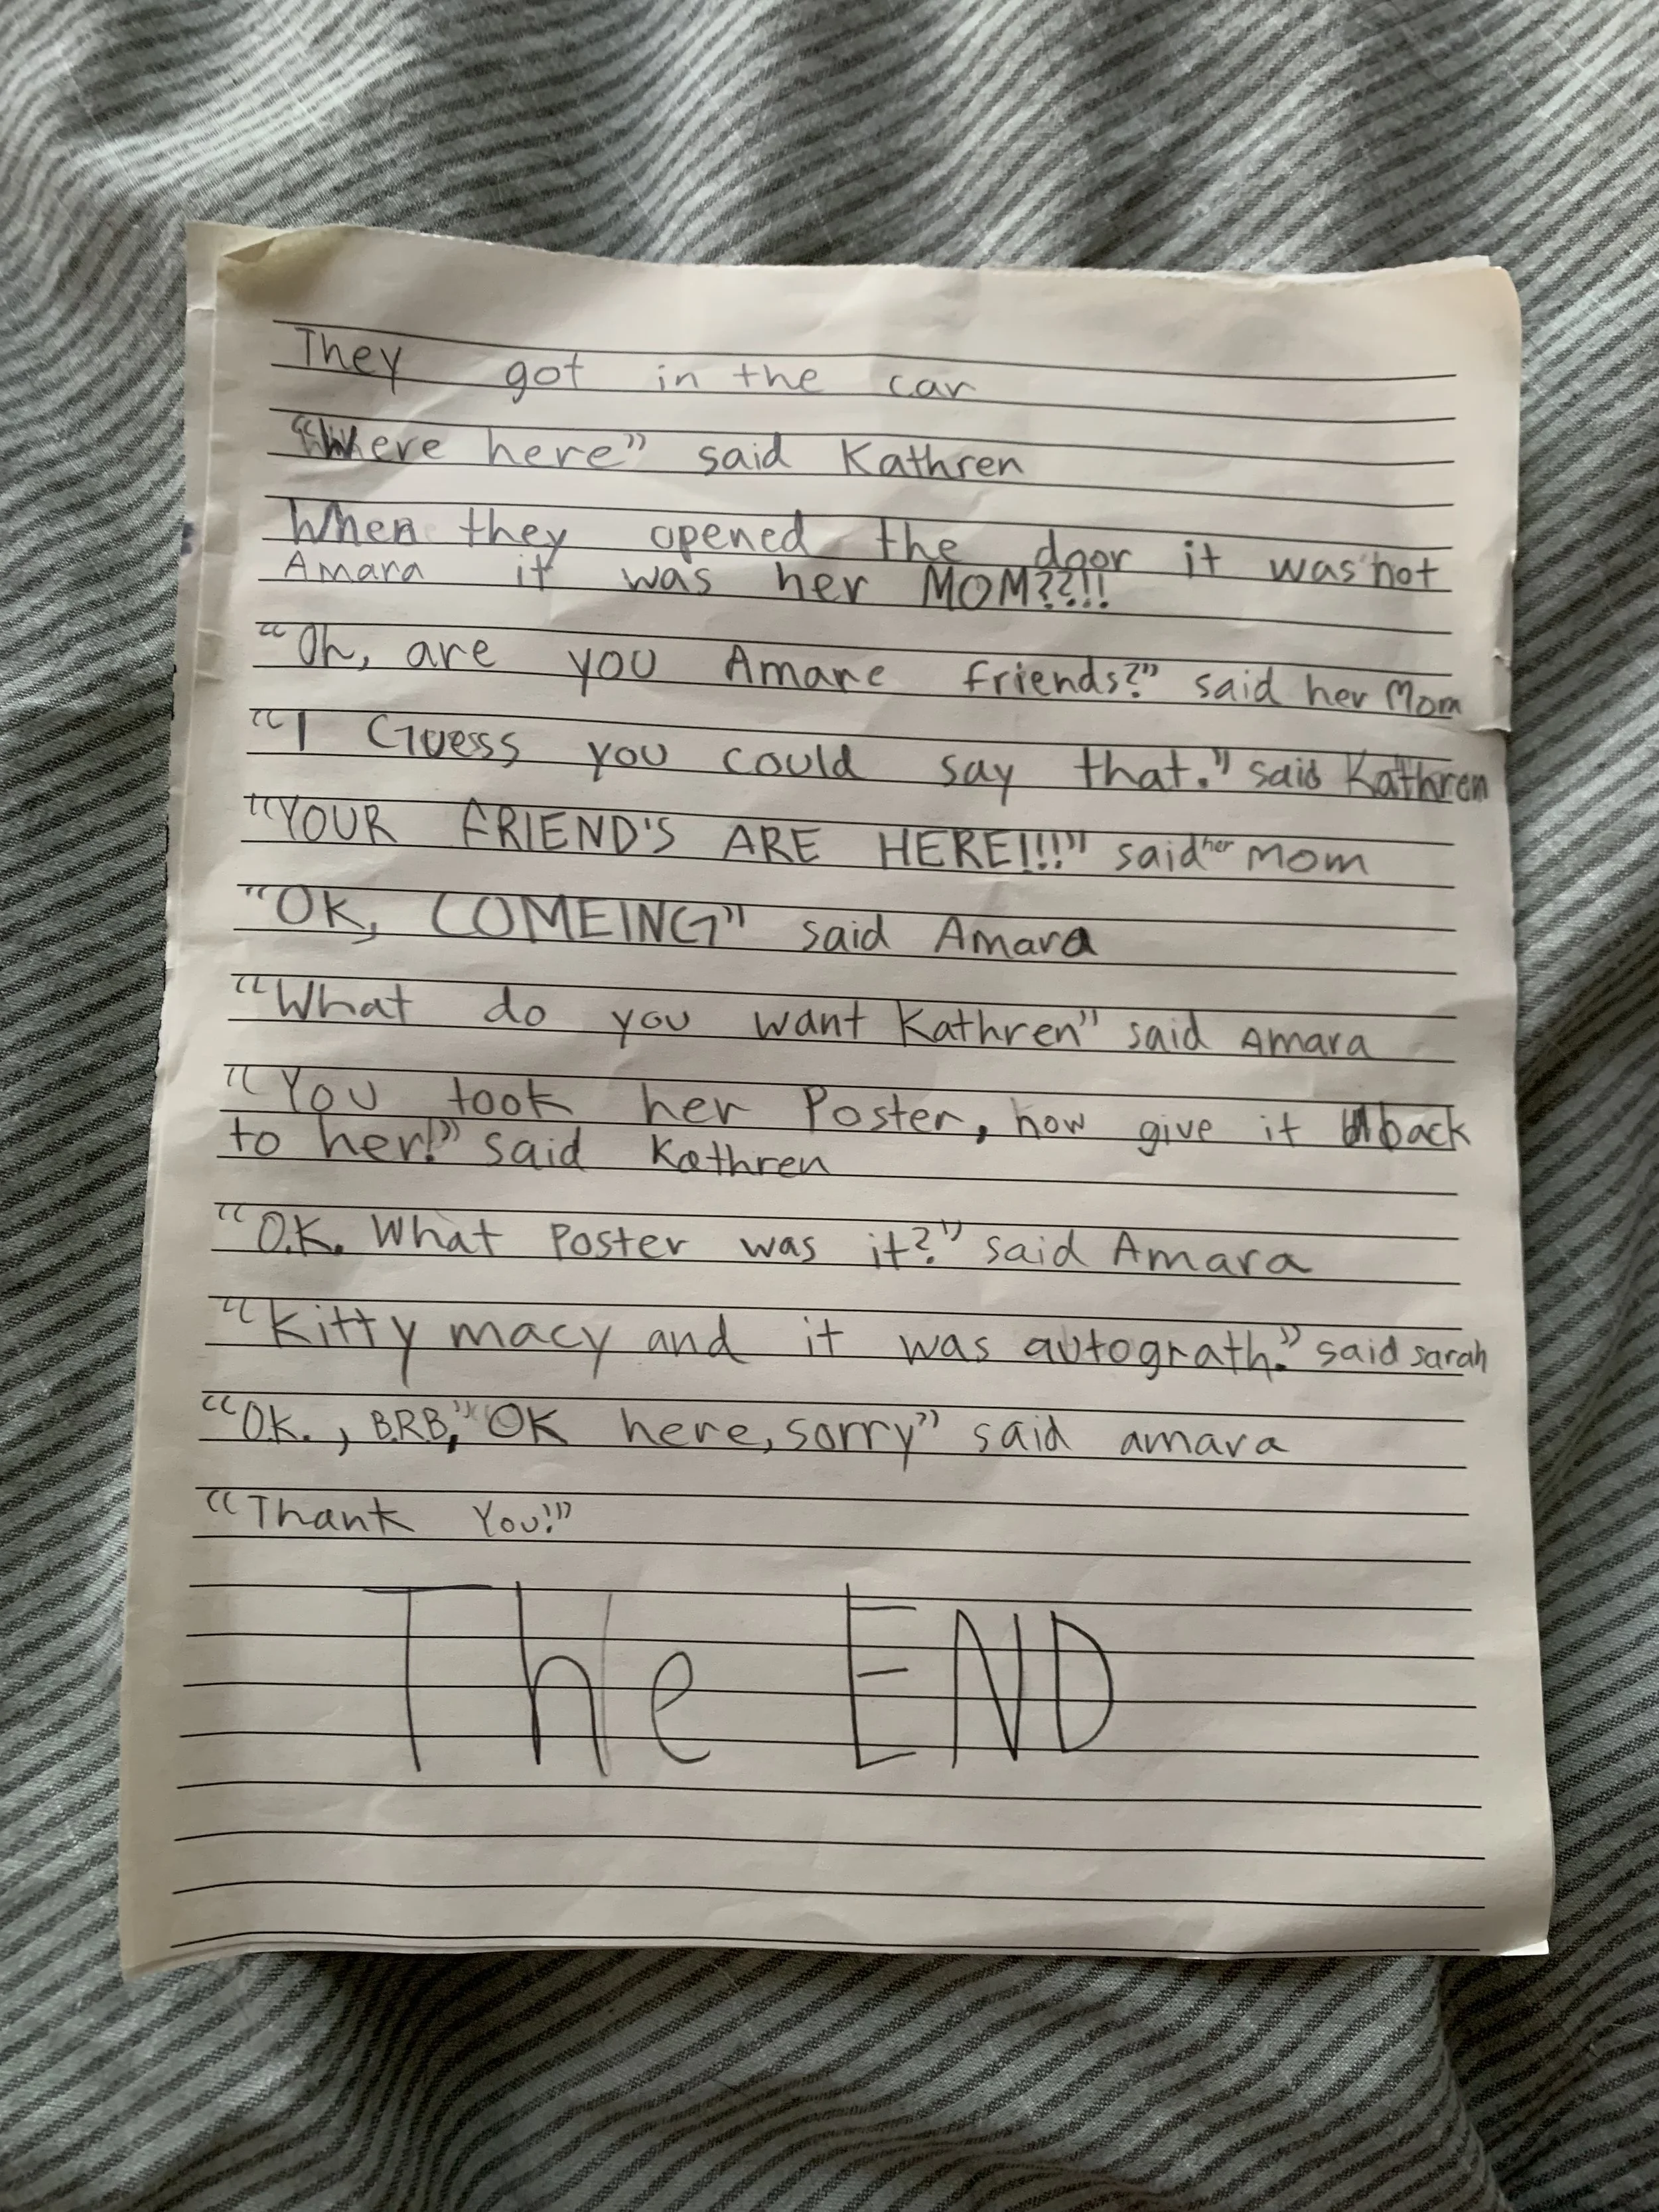 They got in the car
"Where here" said Kathren
When they opened the door it was not
Amara it was her MOM??!!
"Oh, are you Amare friends?" said her Mom
"I Guess you could say that." said Kathren
"YOUR FRIEND'S ARE HERE!!!" said her Mom
"OK, COMEING" said Amara
"What do you want Kathren" said Amara
"You took her Poster, now give it back
to her!" said Kathren
"O.K. What Poster was it?" said Amara
"Kitty macy and it was autograth." said sarah
"O.K., B.R.B," "OK here, sorry" said amara
"Thank You!"
The END